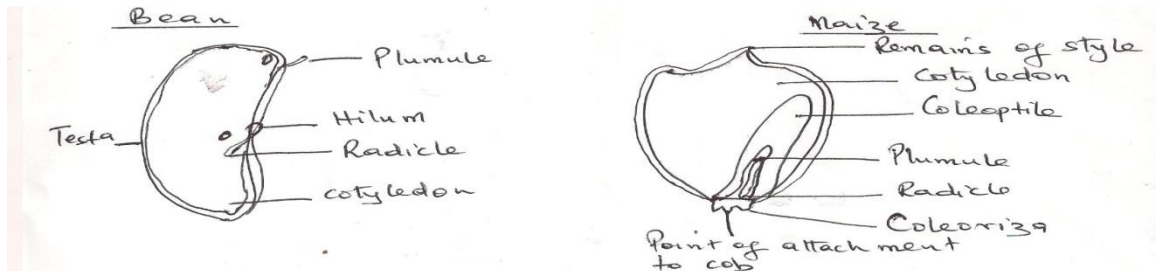 Bean
Plumule
Hilum
Testa
Radicle
cotyledon
Maize
Remains of style
Cotyledon
Coleoptile
Plumule
Radicle
Coleoriza
Point of attachment
to cob